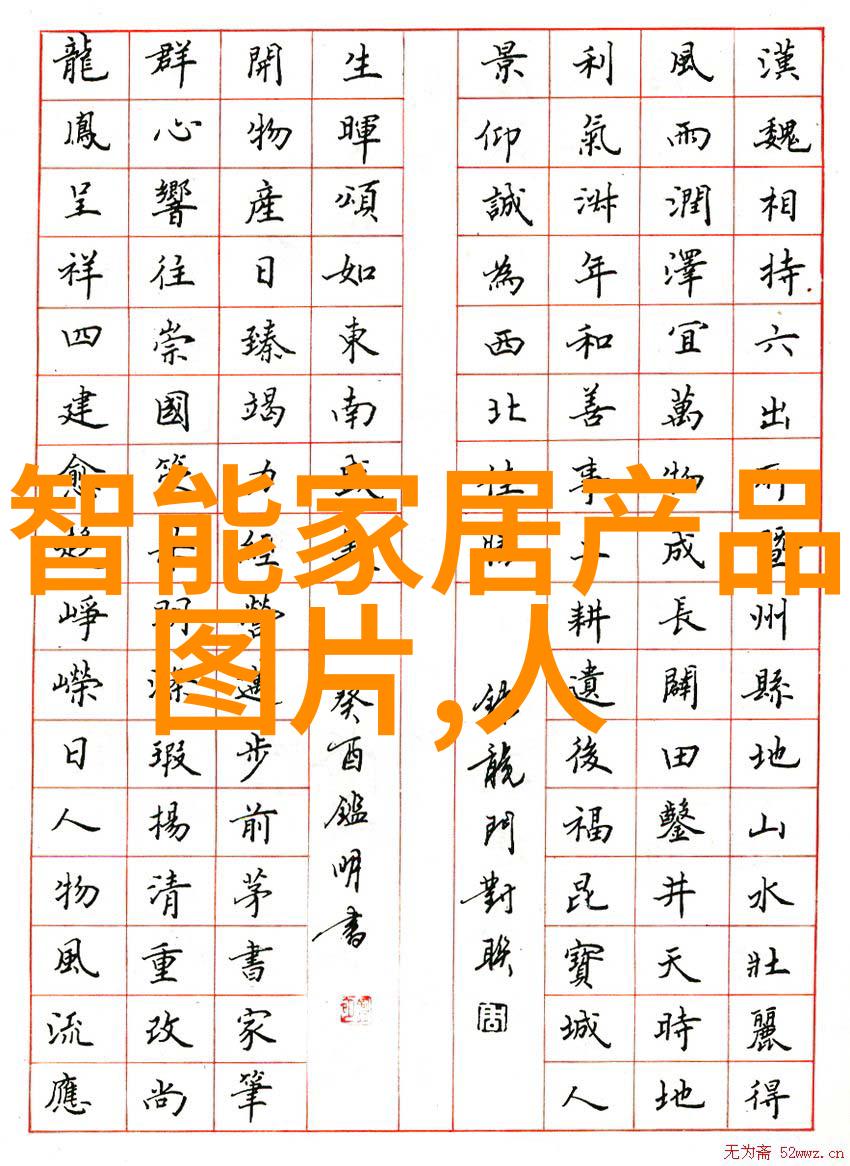 智能家居产品
图片,人
漢魏相持六出暨州縣地山水壯麗得
風雨潤澤宜萬物成長闢田鑿井天時地
利氣年和善事耕遺後福昆寶城人
景仰誠為西北
龍門對聯
生暉頌如東南
癸酉鑑明書
開物產日臻竭力經營進步前茅書家筆
群心響往崇國策明滌瑕揚清重改尚
龍鳳呈祥四建愈趨崢嶸日人物風流應
无为斋 52wwz.cn